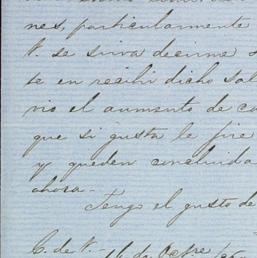 nes, particularmente
V. se sirva decirme s
te en recibir dicho sal
vio el aumento de ca
que si gusta le fire
y queden concluida
ahora.-
Tengo el gusto de
C. de V.- 16 de Octre